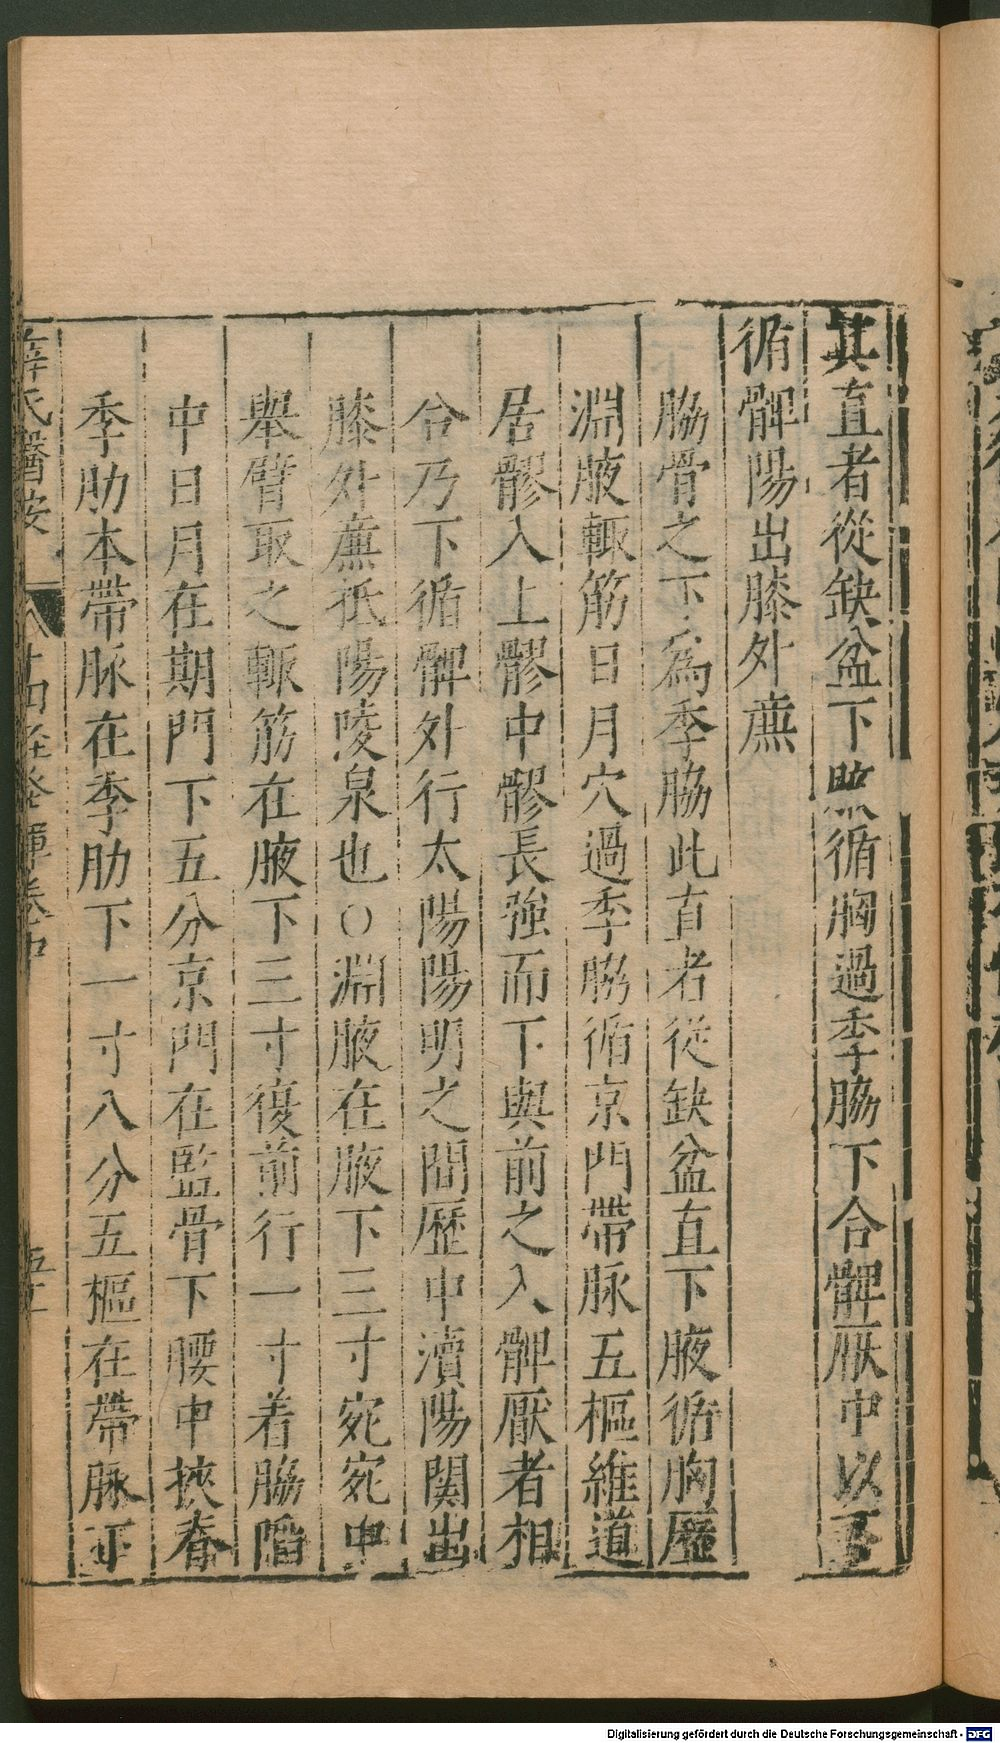 其直者從缺盆下腋循胸過季脇下合髀厭中以下
循髀陽出膝外廉
脇骨之下爲季脇此直者從缺盆直下腋循胸歷
淵腋輒筋日月穴過季脇循京門帶脉五樞維道
居髎入上髎中髎長強而下與前之入髀厭者相
合乃下循髀外行太陽陽明之間歷中瀆陽関出
膝外廉抵陽陵泉也○淵腋在腋下三寸宛宛中
舉臂取之輒筋在腋下三寸復前行一寸着脇陷
中日月在期門下五分京門在監骨下腰中挾脊
季肋本帶脉在季肋下一寸八分五樞在帶脉下
薛氏醫按 八十四經發揮卷中 五十
Digitalisierung gefördert durch die Deutsche Forschungsgemeinschaft - DFG